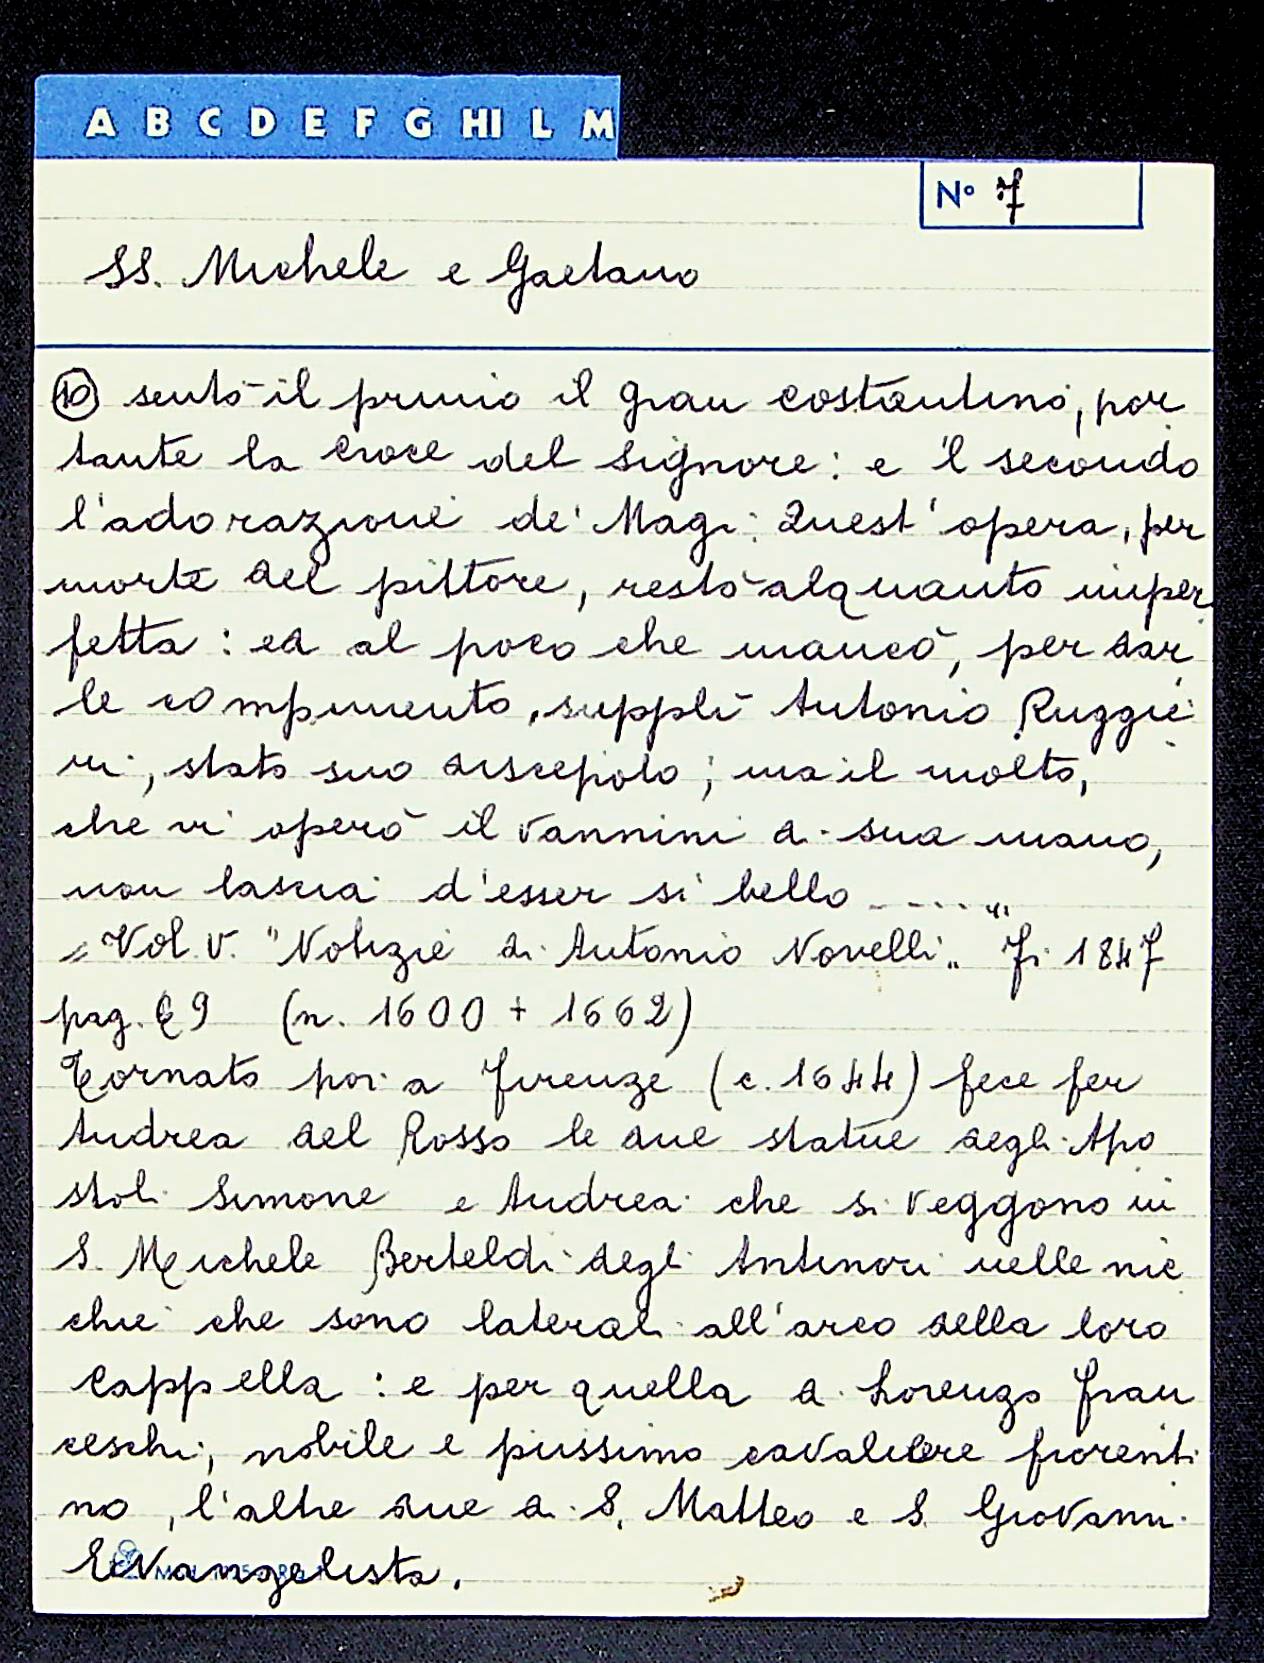 A B C D E F G HI L M
N° 7
SS. Michele e Gaetano
⑩ sentò il primo il gran costantino, por
tante la croce del Signore: e 'l secondo
l'adorazione de' Magi: Quest'opera, per
morte del pittore, restò alquanto imper
fetta: ed al poco che mancò, per dar
le compimento, supplì Antonio Ruggie
ri, stato suo discepolo; ma il molto,
che vi operò il Vannini di sua mano,
non lascia d'esser sì bello ....."
"Vol. V. "Notizie di Antonio Novelli" Fi 1847
pag. 69 (n. 1600 + 1662)
Tornato poi a Firenze (c. 1644) fece per
Andrea del Rosso le due statue degli Apo
stoli Simone e Andrea che si veggono in
S. Michele Berteldi degli Antinori nelle nic
chie che sono laterali all'arco della loro
Cappella: e per quella di Lorenzo Fran
ceschi, nobile e piissimo cavaliere fiorenti
no, l'altre due di S. Matteo e S. Giovanni
Evangelista.